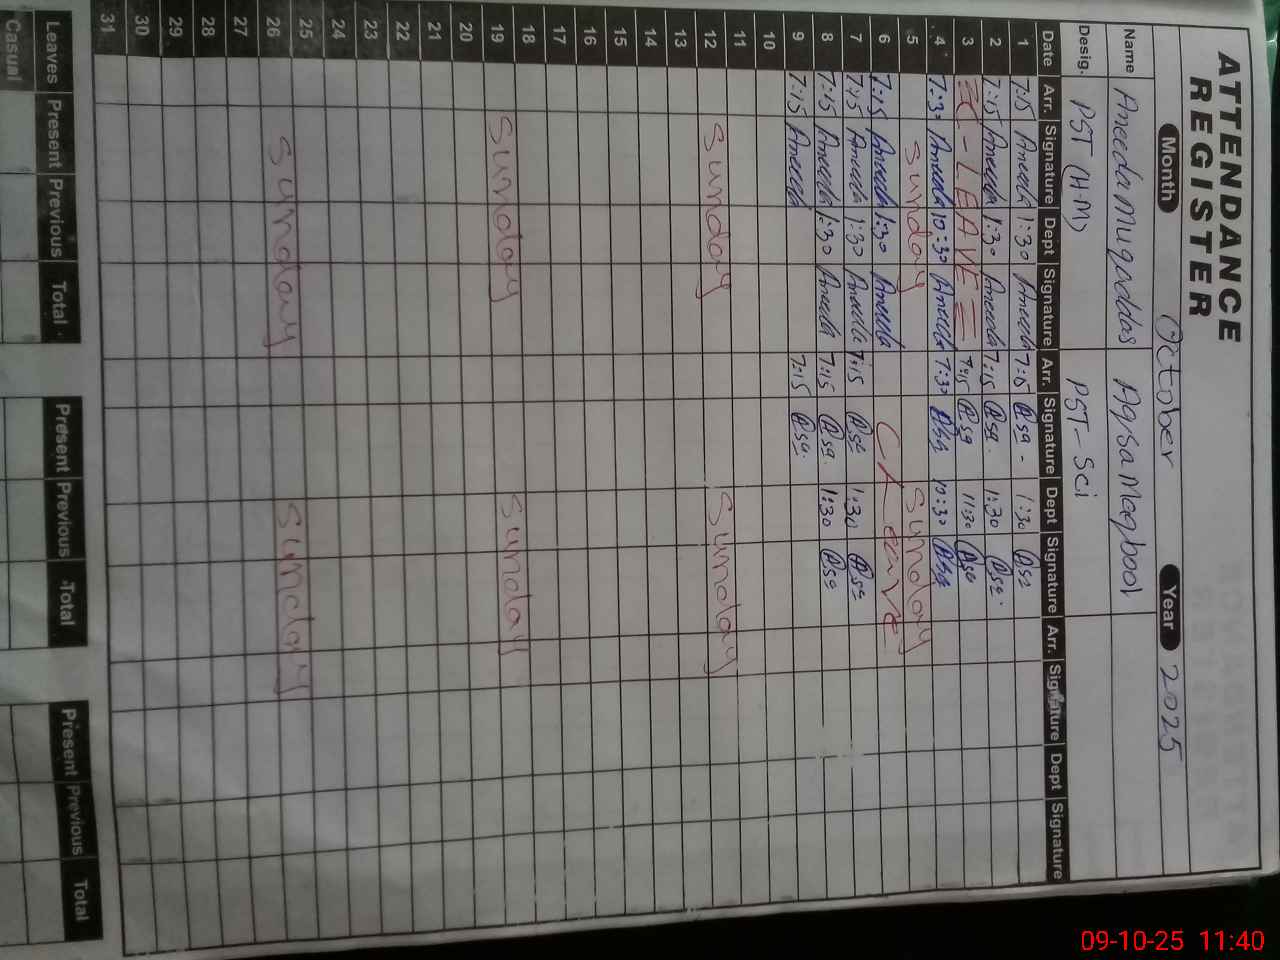 ATTENDANCE
REGISTER
Month October Year 2025
Name Aneeda Muqaddas Aqsa Maqbool
Desig. PST (H-M) PST - Sci
Date Arr. Signature Dept Signature Arr. Signature Dept Signature Arr. Signature Dept Signature
1 7:15 Aneeda 1:30 Aneeda 7:15 Aqsa 1:30 Aqsa
2 7:15 Aneeda 1:30 Aneeda 7:15 Aqsa 1:30 Aqsa
3 LEAVE 7:15 Aqsa 11:30 Aqsa
4 7:30 Aneeda 10:30 Aneeda 7:30 Aqsa 10:30 Aqsa
5 Sunday Sunday
6 7:15 Aneeda 1:30 Aneeda Leave
7 7:15 Aneeda 1:30 Aneeda 7:15 Aqsa 1:30 Aqsa
8 7:15 Aneeda 1:30 Aneeda 7:15 Aqsa 1:30 Aqsa
9 7:15 Aneeda 7:15 Aqsa
10
11
12 Sunday Sunday
13
14
15
16
17
18
19 Sunday Sunday
20
21
22
23
24
25
26 Sunday Sunday
27
28
29
30
31
Leaves Present Previous Total Present Previous Total Present Previous Total
Casual
09-10-25 11:40